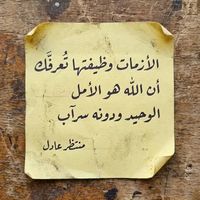 الأزمات وظيفتها تُعرفَّك
أن الله هو الأمل
الوحيد ودونه سرآب
منتظر عادل